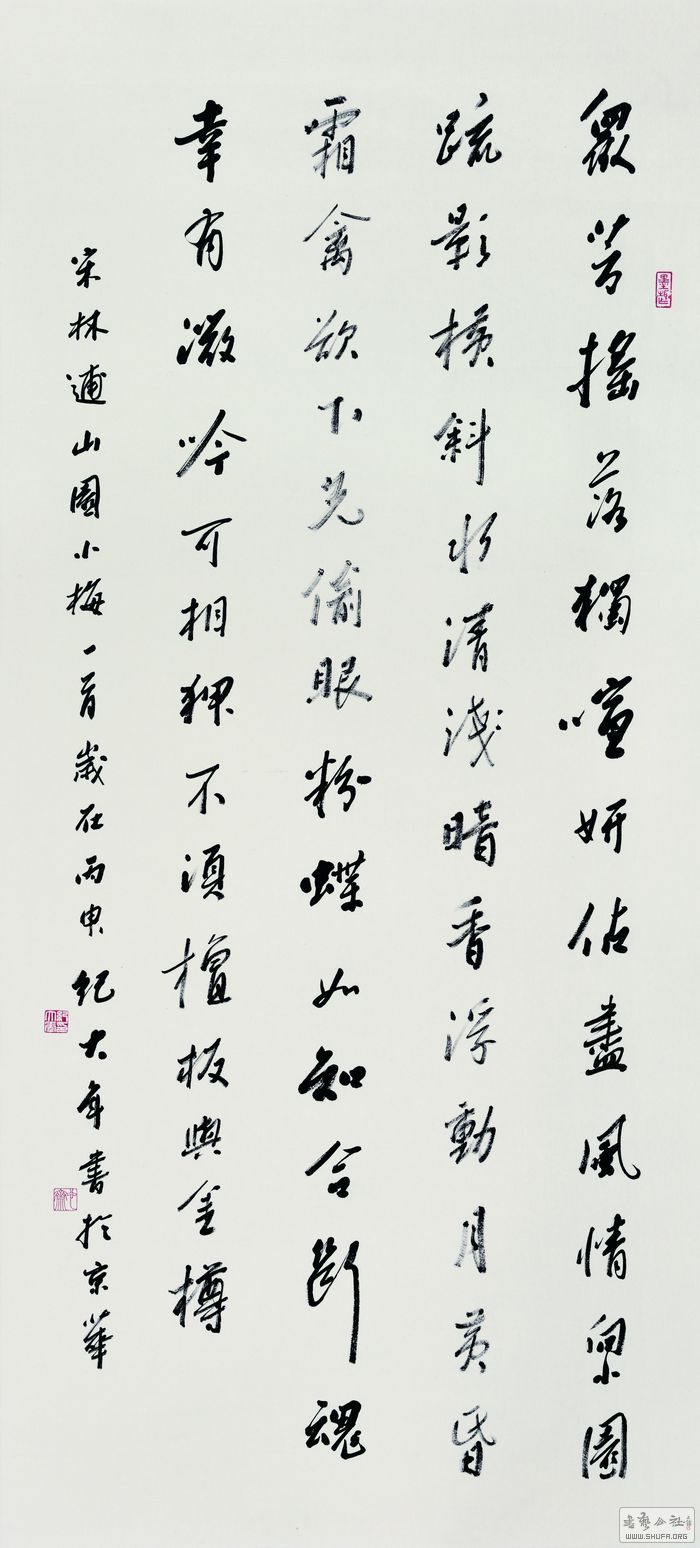 眾芳搖落獨喧妍佔盡風情向小園
疏影横斜水清淺暗香浮動月黄昏
霜禽欲下先偷眼粉蝶如知合斷魂
幸有微吟可相狎不須檀板與金樽
宋林逋山園小梅一首歲在丙申紀大年書於京華
書藝公社
WWW.SHUFA.ORG